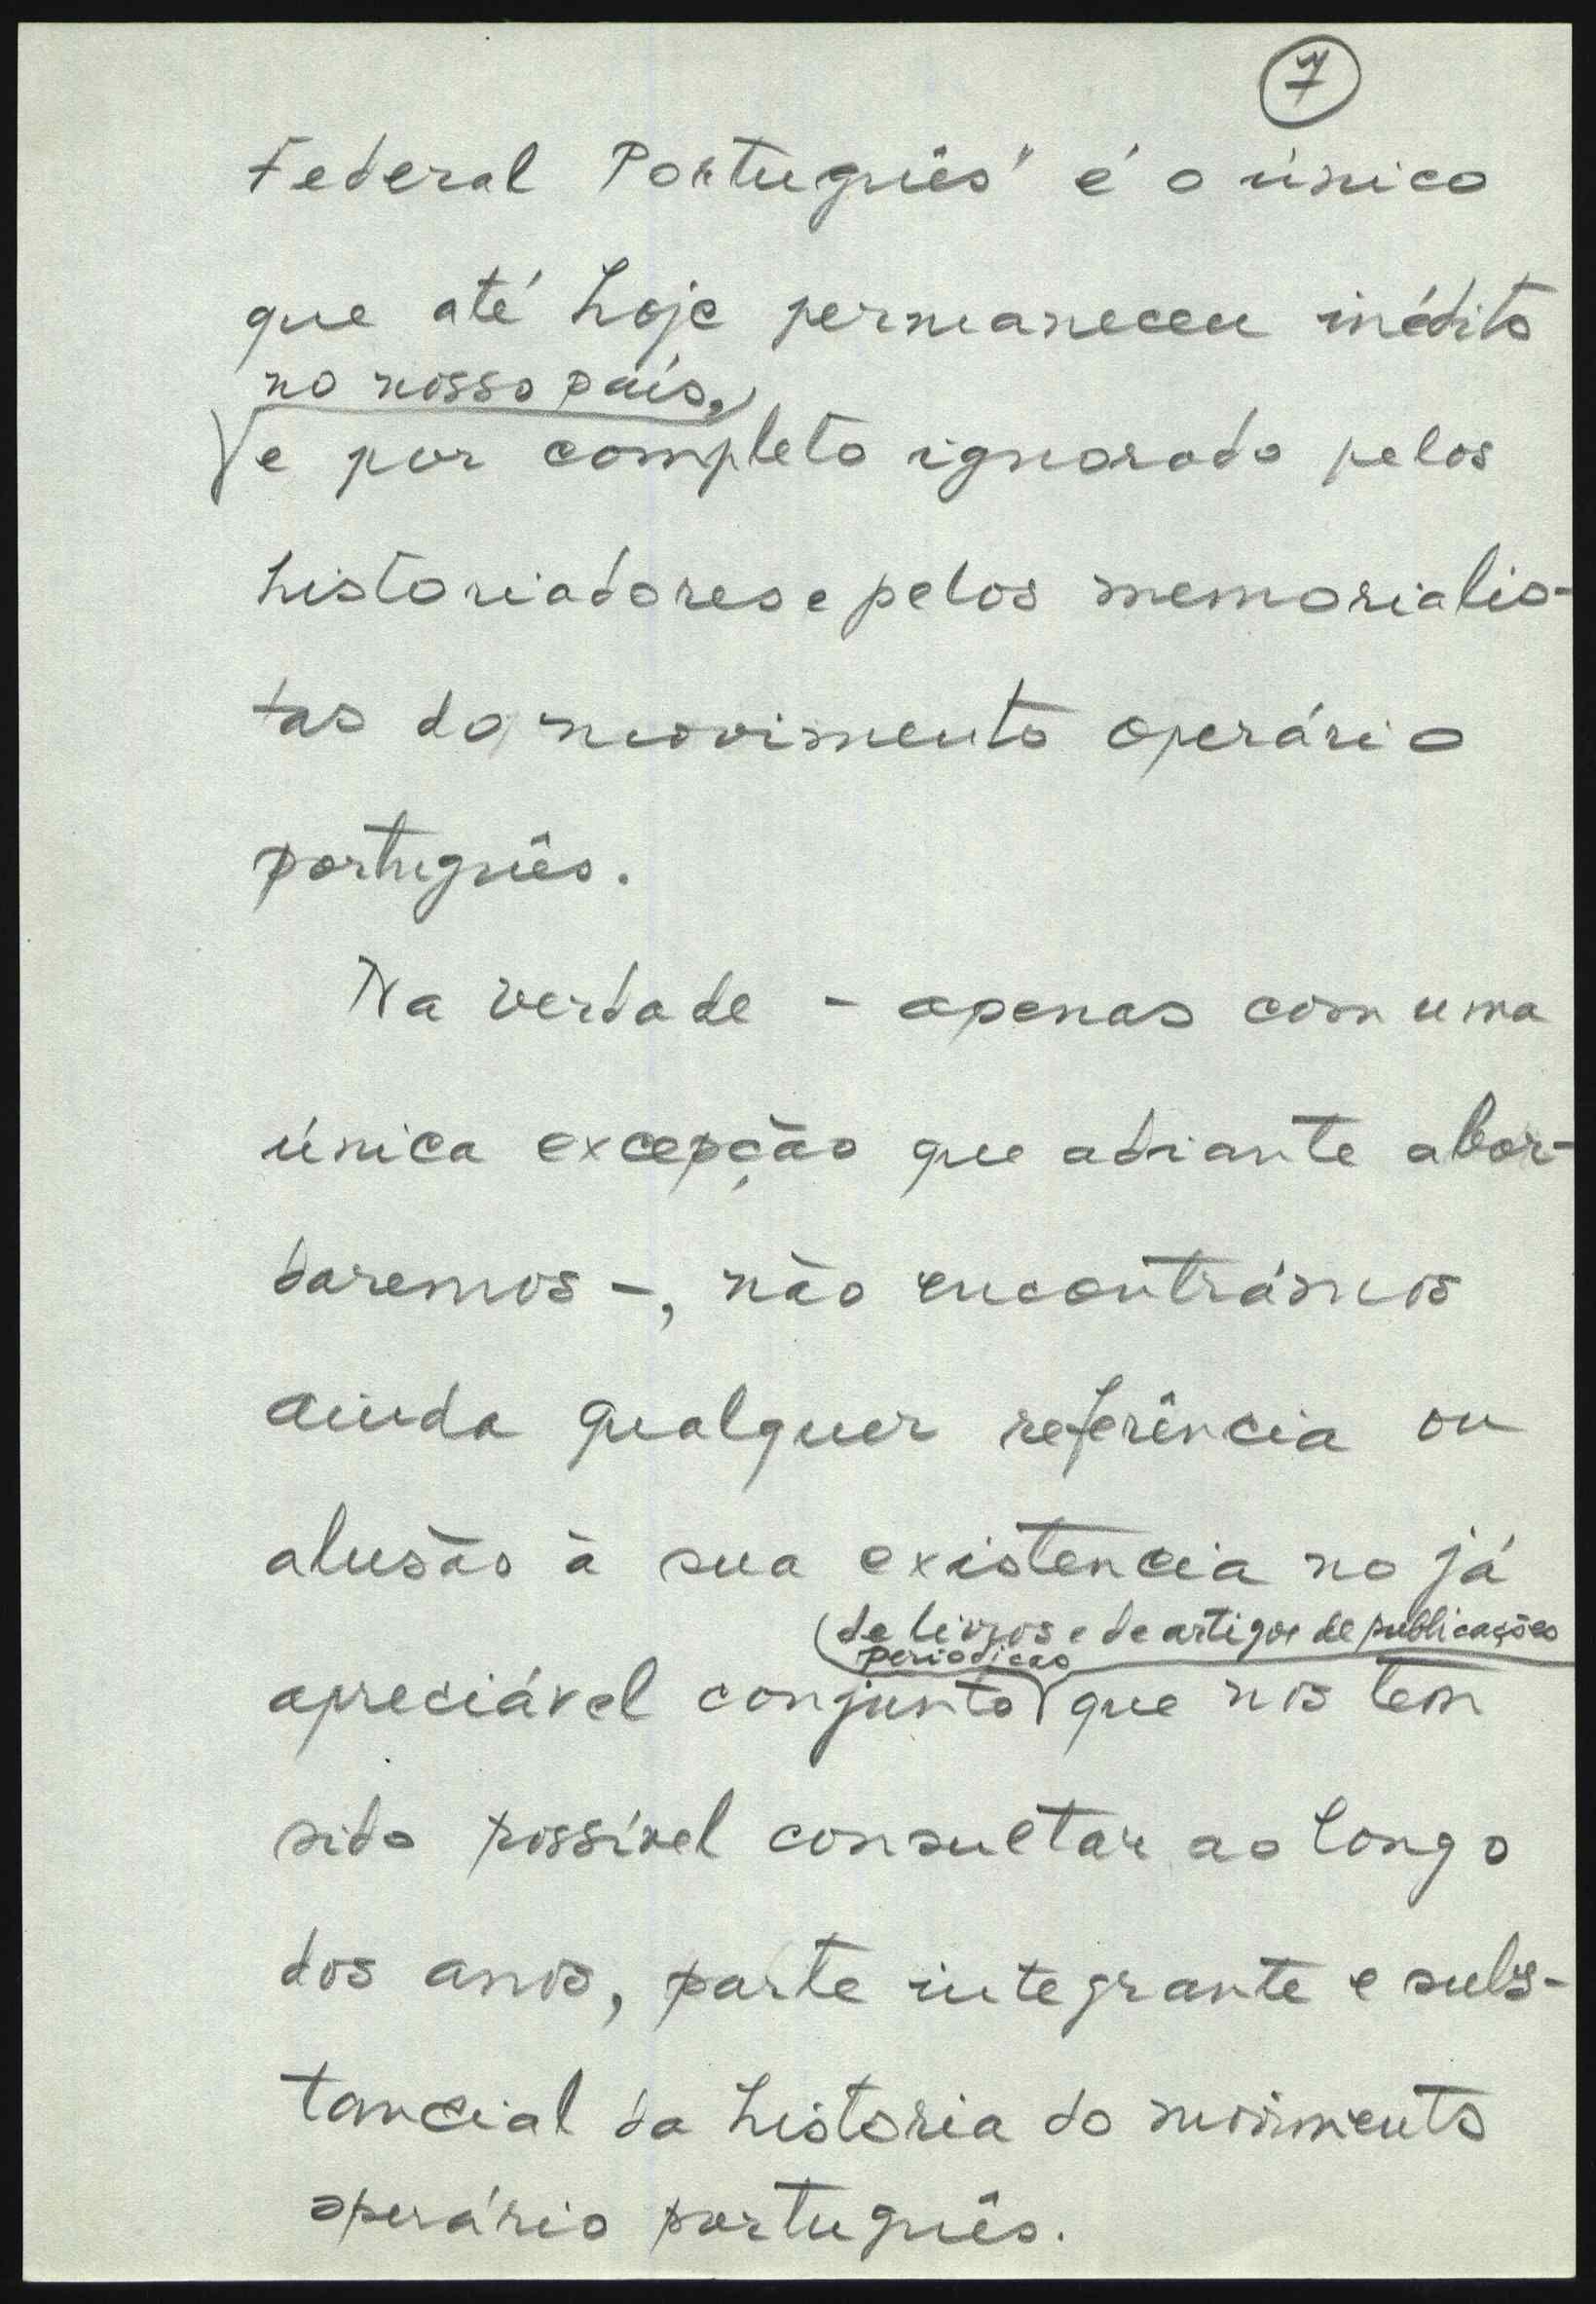 7
Federal Português" é o único
que até hoje permaneceu inédito
no nosso país,
e por completo ignorado pelos
historiadores e pelos memorialis-
tas do movimento operário
português.
Na verdade - apenas com uma
única excepção que adiante abor-
daremos -, não encontrámos
ainda qualquer referência ou
alusão à sua existencia no já
de livros e de artigos de publicações
periodicas
apreciável conjunto que nos tem
sido possível consultar ao longo
dos anos, parte integrante e subs-
tancial da historia do movimento
operário português.